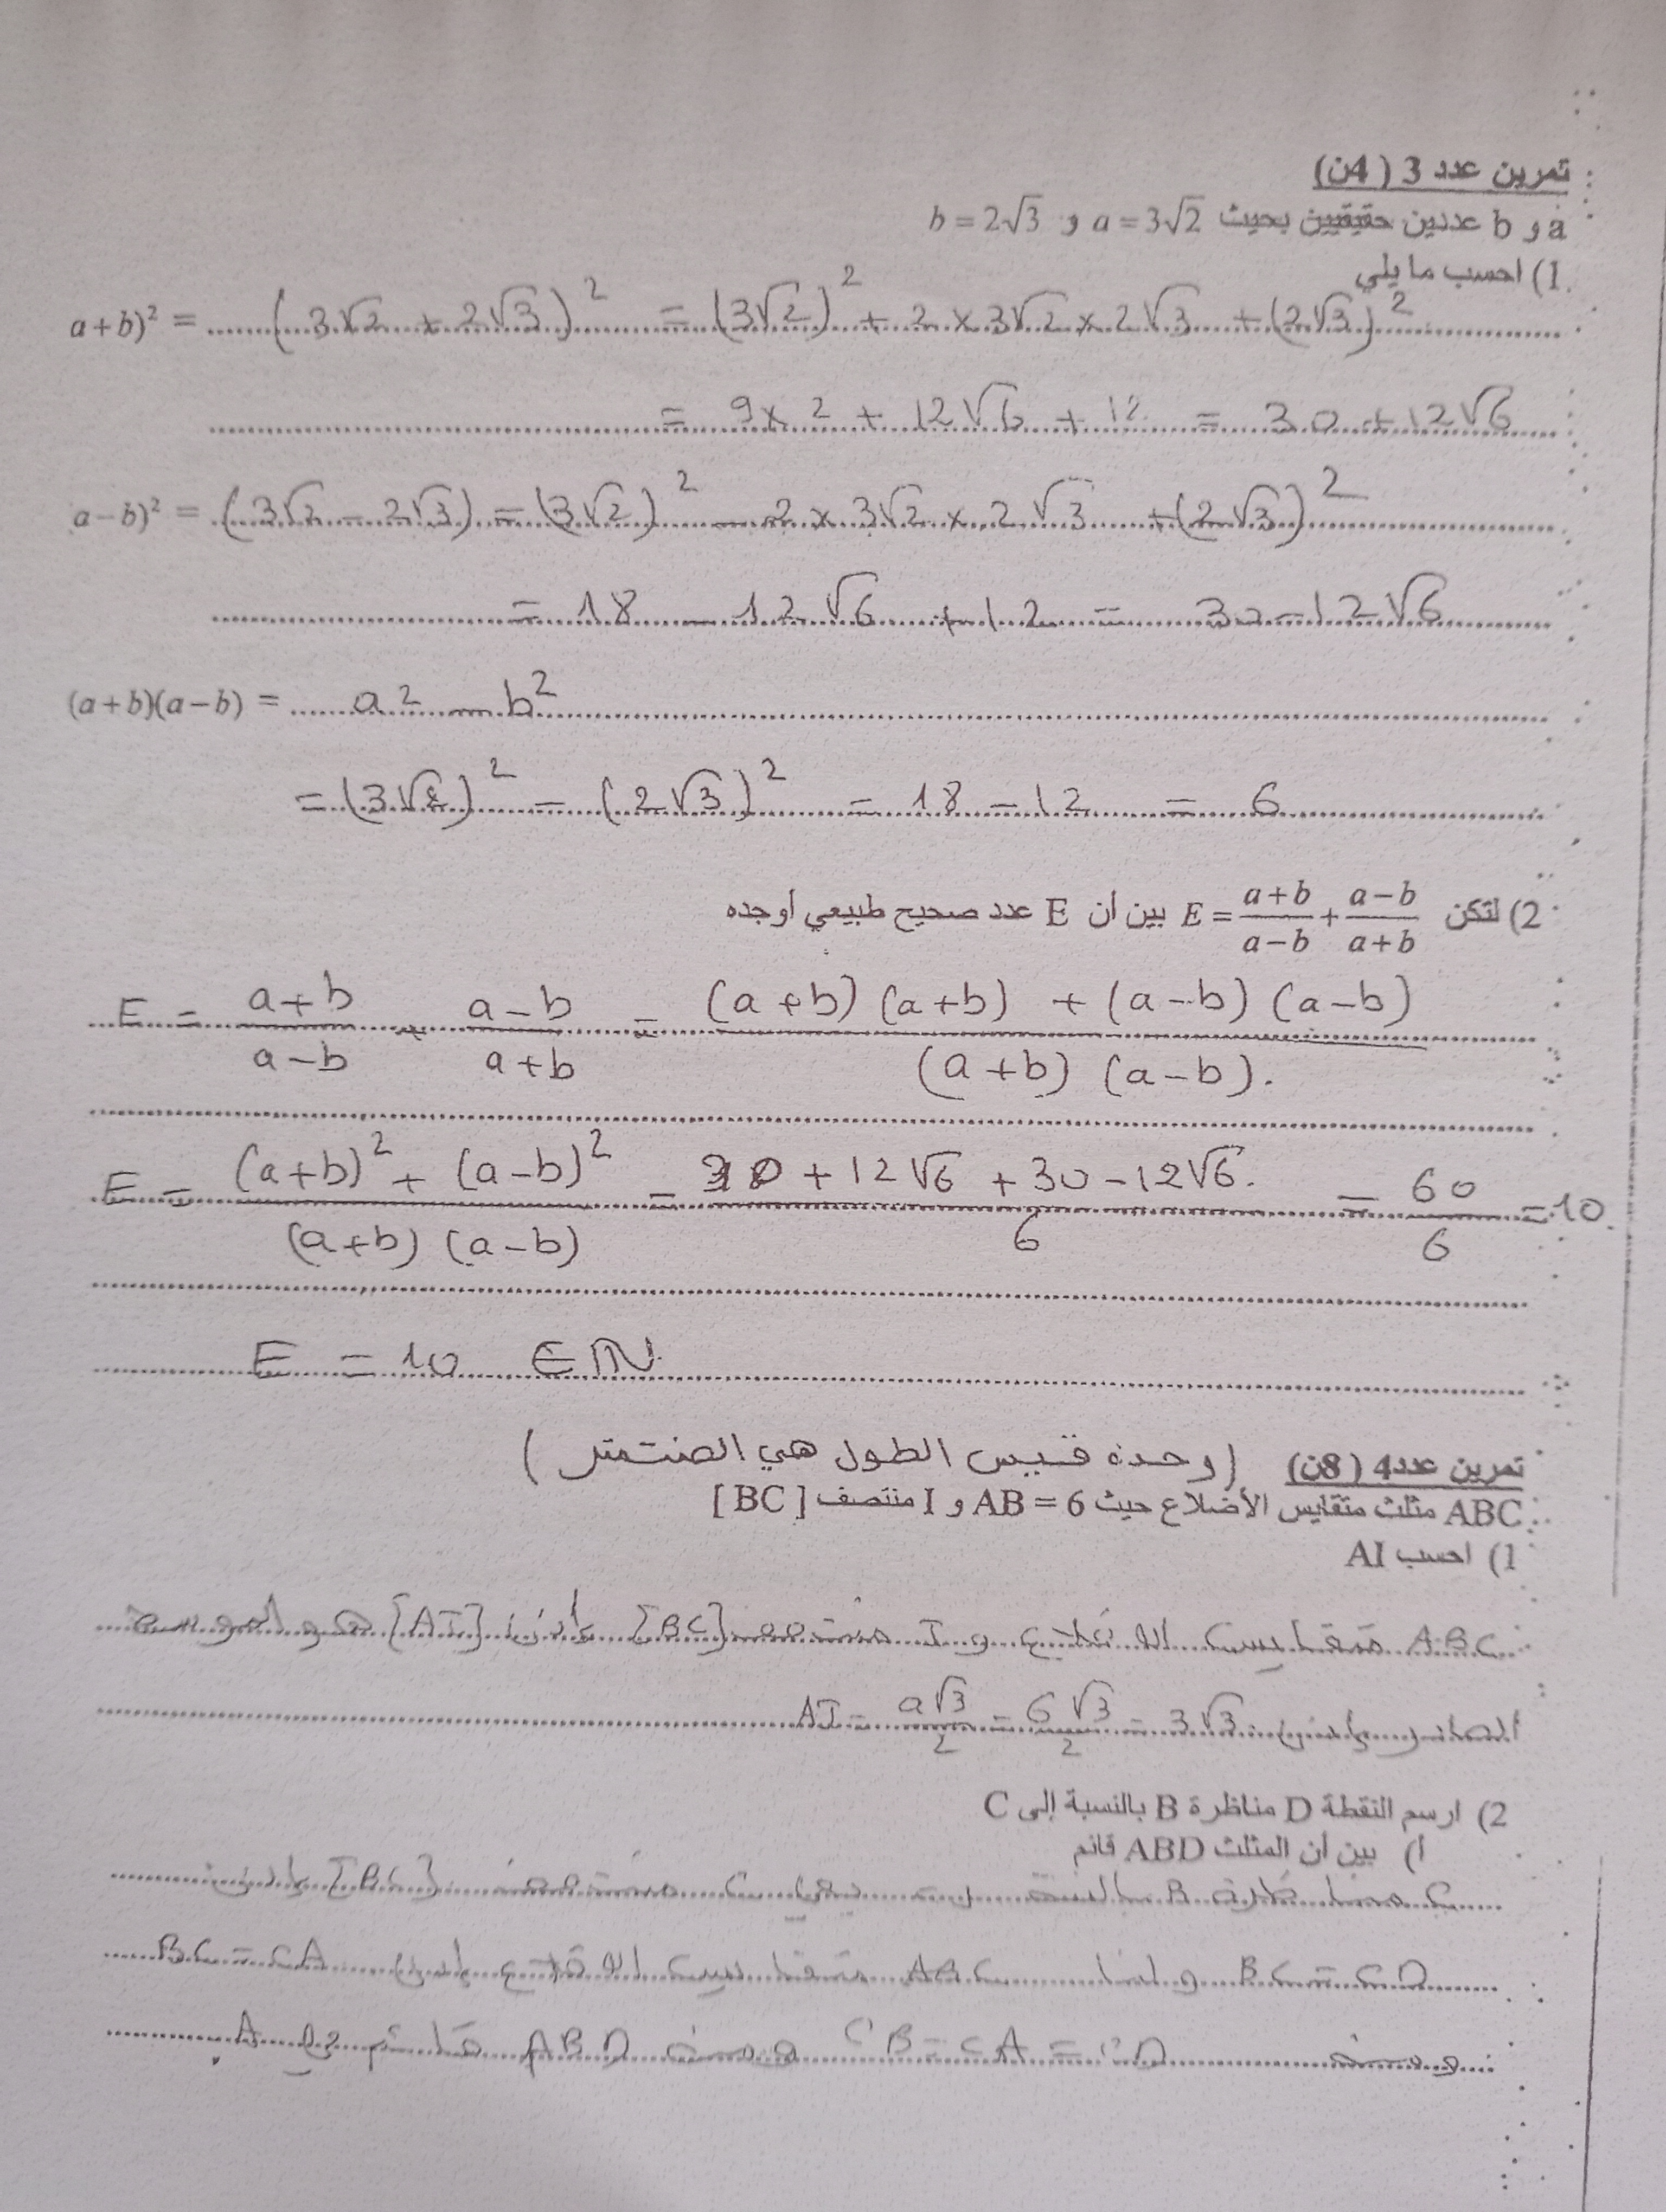 تمرين عدد 3 (4ن)
a و b عددين حقيقيين بحيث a = 3√2 و b = 2√3
1) احسب ما يلي
a+b)² = (3√2 + 2√3)² = (3√2)² + 2 × 3√2 × 2√3 + (2√3)²
= 9 × 2 + 12√6 + 12 = 30 + 12√6
a−b)² = (3√2 − 2√3) = (3√2)² − 2 × 3√2 × 2√3 + (2√3)²
= 18 − 12√6 + 12 = 30 − 12√6
(a+b)(a−b) = a² − b²
= (3√2)² − (2√3)² = 18 − 12 = 6
2) لتكن E = (a+b)/(a−b) + (a−b)/(a+b) بين أن E عدد صحيح طبيعي أوجده
E = (a+b)/(a−b) + (a−b)/(a+b) = ((a+b)(a+b) + (a−b)(a−b))/((a+b)(a−b)).
E = ((a+b)² + (a−b)²)/((a+b)(a−b)) = (30 + 12√6 + 30 − 12√6)/6 = 60/6 = 10.
E = 10 ∈ ℕ
تمرين عدد4 (8ن) (وحدة قيس الطول هي الصنتمتر)
ABC مثلث متقايس الأضلاع حيث AB = 6 و I منتصف [BC]
1) احسب AI
ABC متقايس الأضلاع و I منتصف [BC] إذن [AI] هو الموسط
الصادر إذن AI = a√3/2 = 6√3/2 = 3√3
2) ارسم النقطة D مناظرة B بالنسبة إلى C
أ) بين أن المثلث ABD قائم
مناظرة B بالنسبة يعني C منتصف إذن
BC = CD و لنا ABC متقايس الأضلاع إذن BC = CA
ومنه CB = CA = CD ومنه ABD قائم في A